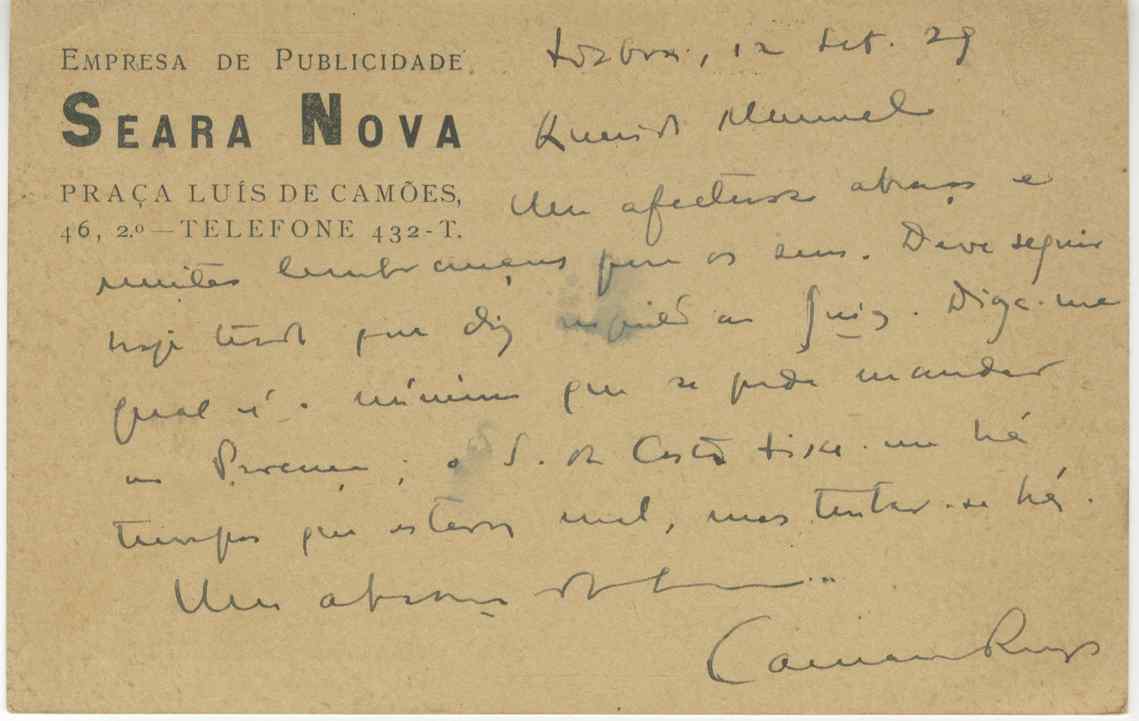 EMPRESA DE PUBLICIDADE
SEARA NOVA
PRAÇA LUÍS DE CAMÕES,
46, 2.º — TELEFONE 432-T.
Lisboa, 12 Set. 29
Querido Manuel
Um afectuoso abraço e
muitas lembranças para os seus. Deve seguir
hoje tarde por
. Diga-me
qual é o mínimo que se pode mandar
ao Proença; o S. da Costa disse-me há
tempos que estava mal, mas tentar-se há.
Um abraço do
Câmara Reys